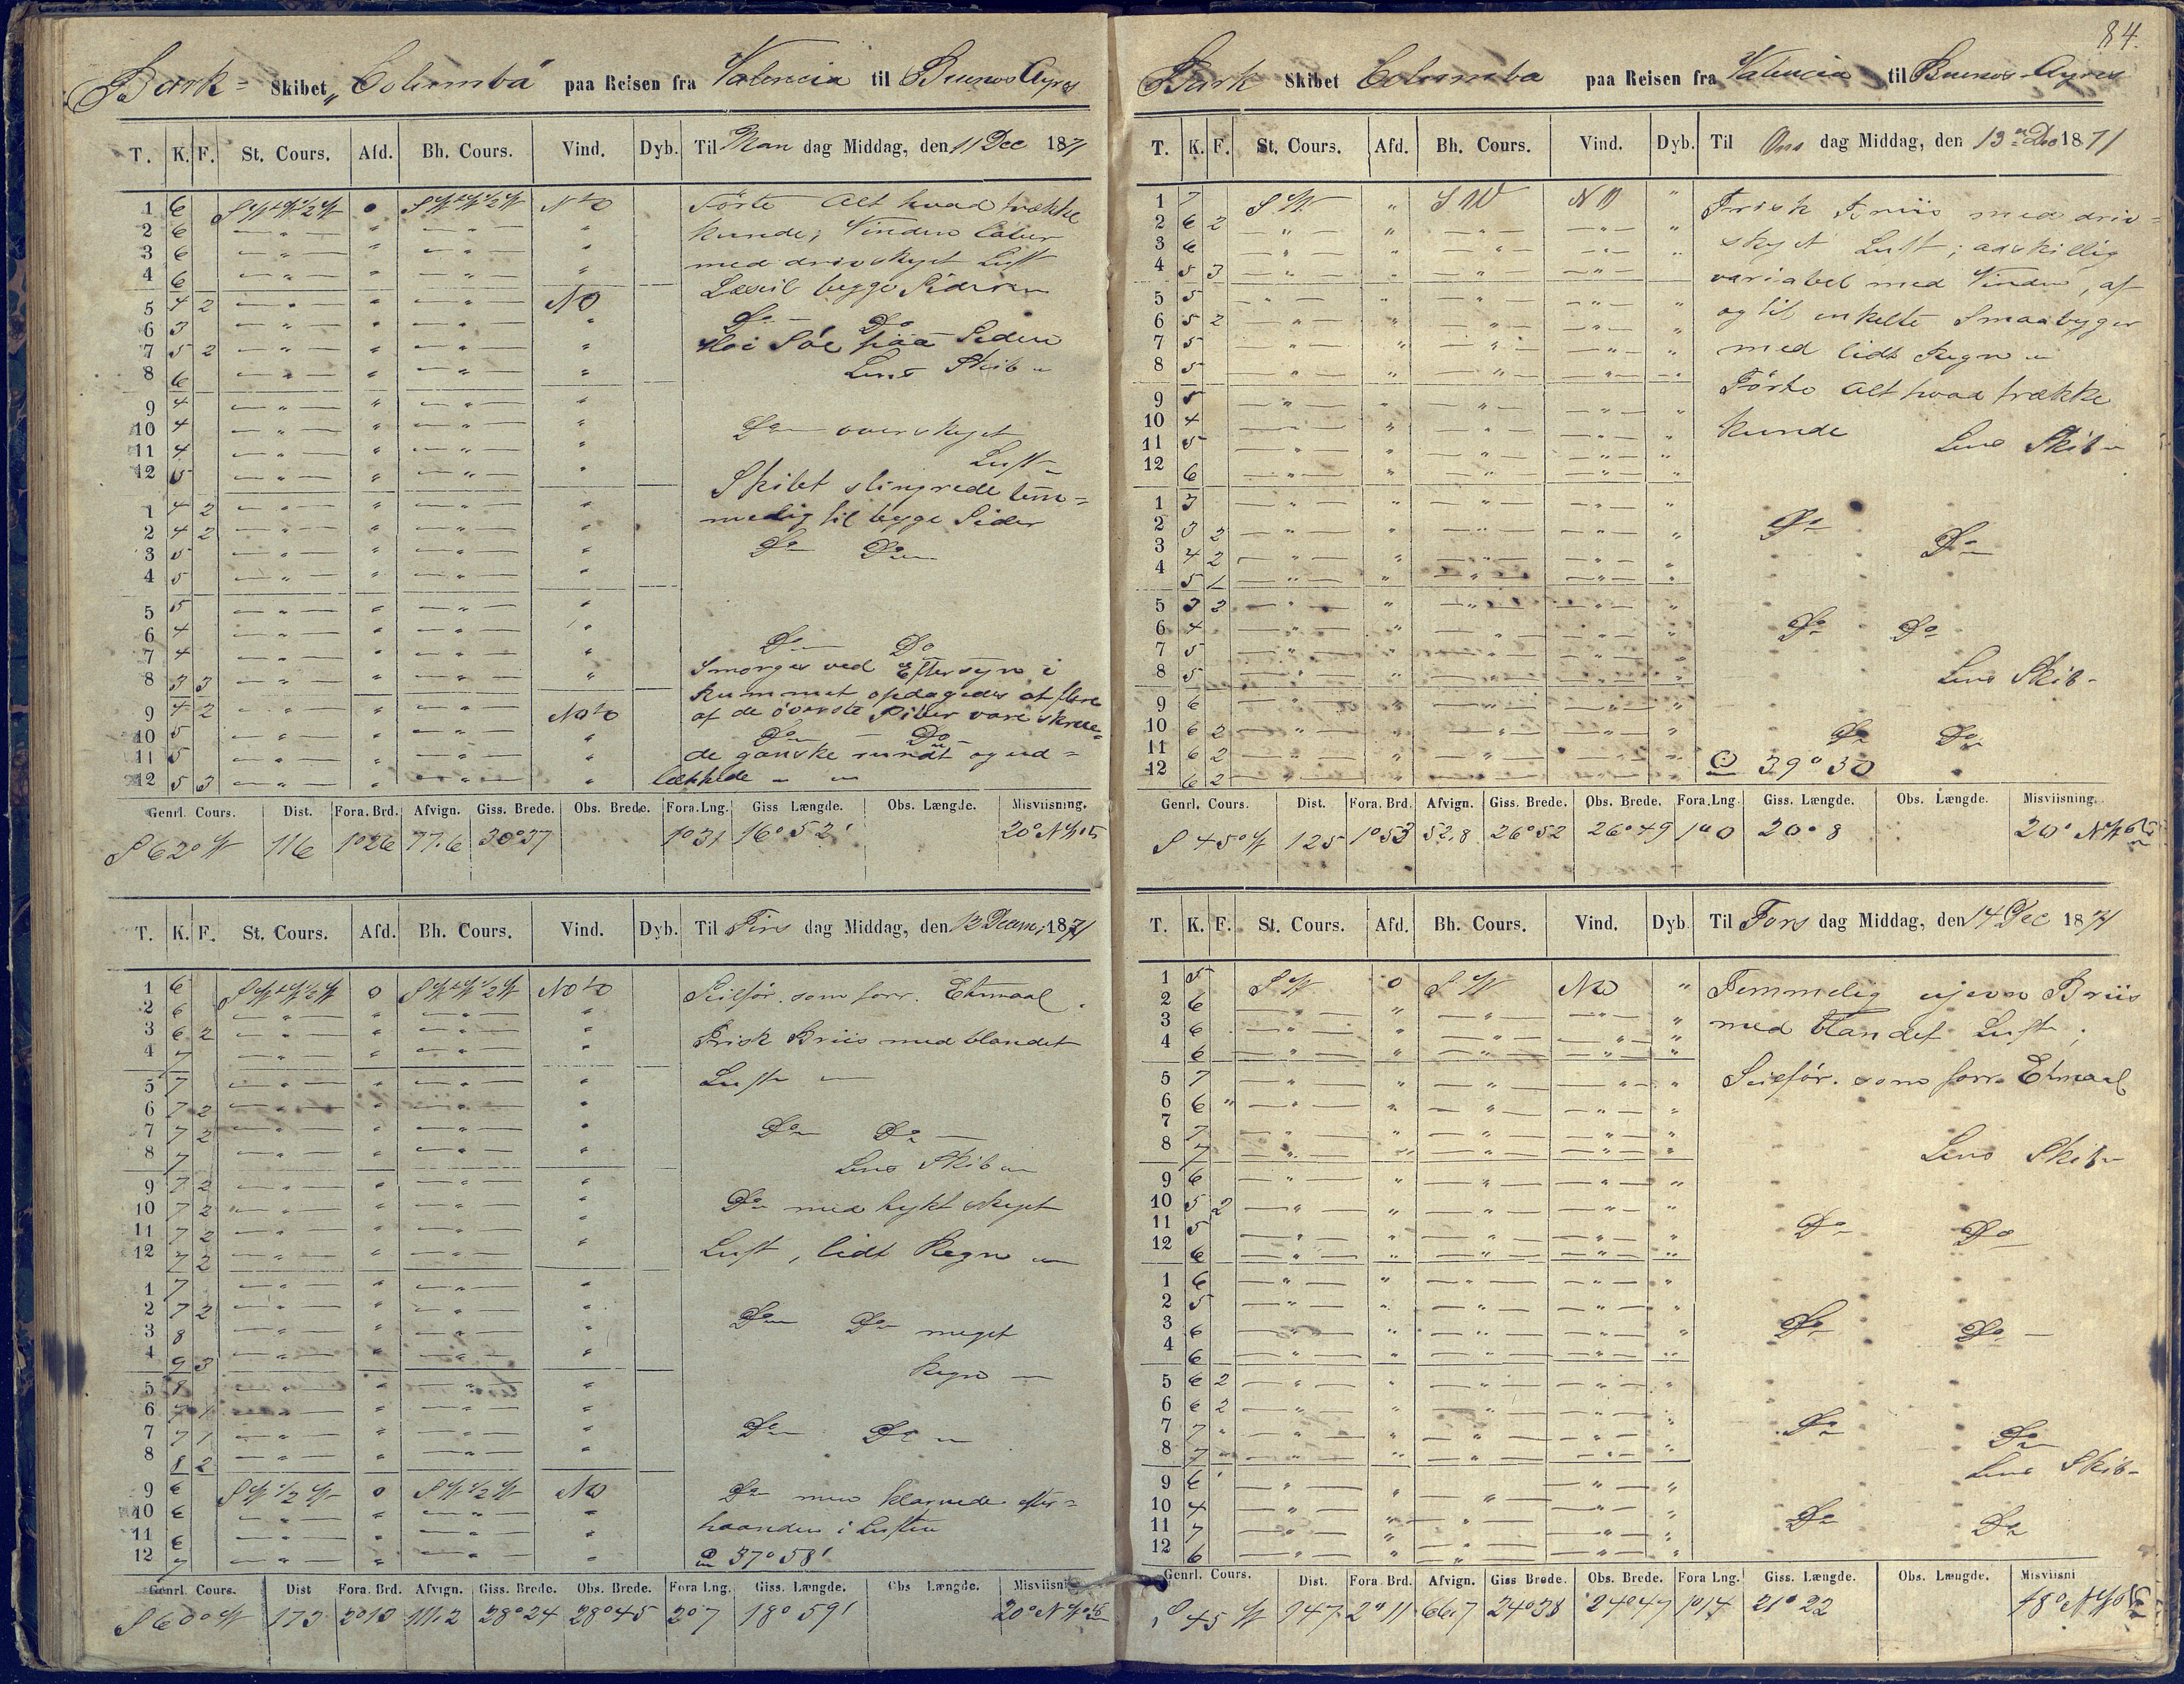 84.
Bark- Skibet "Columba" paa Reisen fra Valencia til Buenos Ayres
T. K. F. St. Cours. Afd. Bh. Cours. Vind. Dyb. Til Man dag Middag, den 11 Dec 1871
1 6 NtO Förte Alt hvad trække
2 6 kunde; Vinden
3 6 med drivskyet Luft
4 6 Læseil begge Sider
5 4 2 NO Do Do
6 3
7 5 2 Höi Söe paa Siden
8 6 Lens Skib
9 4
10 4 Do overskyet
11 4 Luft
12 5 Skibet slingrede tem=
1 4 2 melig til begge Sider
2 4 2
3 5 Do Do
4 5
5 5
6 4 Do Do
7 4 Imorges ved Eftersyn i
8 3 3 Rummet opdagedes at flere
9 4 2 NOtO af de överste Piber vare
10 5 Do Do
11 5 de ganske rundt og ud=
12 5 3 lækkede
Genrl. Cours. Dist. Fora. Brd. Afvign. Giss. Brede. Obs. Brede. Fora. Lng. Giss Længde. Obs. Længde. Misviisning.
S 62° W 116 1°26 77.6 30°37 1°31 16° 52' 20° NW
T. K. F. St. Cours. Afd. Bh. Cours. Vind. Dyb. Til Tirs dag Middag, den 12 Decem; 1871
1 6 0 NOtO Seilför. som forr. Etmaal
2 6
3 6 2 Frisk Briis med blandet
4 7
5 7 Luft
6 7 2
7 7 2 Do Do
8 7 Lens Skib
9 7 2
10 7 2 Do med tykt skyet
11 7 2
12 7 2 Luft, lidt Regn
1 7
2 7 2 Do Do meget
3 8
4 9 3 Regn
5 8
6 7 1
7 7 1 Do Do
8 8 2
9 6 SW 1/2 W 0 SW 1/2 W NO Do men klarnede efter=
10 6 haanden i Luften
11 6
12 7 37° 58'
Genrl. Cours. Dist Fora. Brd. Afvign. Giss. Brede. Obs. Brede. Fora Lng. Giss. Længde. Obs Længde. Misviisni
S 60° W 173 2°13 111.2 28°24 28°45 2°7 18° 59' 20° NW
Bark Skibet Columba paa Reisen fra Valencia til Buenos-Ayres
T. K. F. St. Cours. Afd. Bh. Cours. Vind. Dyb. Til Ons dag Middag, den 13 Dec 1871
1 7 SW " SW NO " Frisk Briis med driv=
2 6 2
3 6 skyet Luft; adskillig
4 5 3 variabel med Vinden, af
5 5
6 5 2 og til enkelte Smaabyger
7 5 med lidt Regn
8 5
9 5 Förte Alt hvad trække
10 4
11 5 kunde Lens Skib
12 6
1 3
2 3 2 Do Do
3 4 2
4 5 1
5 3 2
6 4 Do Do
7 5
8 5 Lens Skib
9 6
10 6 2 Do Do
11 6 2
12 6 2 39° 30
Genrl. Cours. Dist. Fora. Brd. Afvign. Giss. Brede. Obs. Brede. Fora. Lng. Giss. Længde. Obs. Længde. Misviisning.
S 45° W 125 1°53 52.8 26°52 26°49 1°0 20° 8 20° NW
T. K. F. St. Cours. Afd. Bh. Cours. Vind. Dyb. Til Tors dag Middag, den 14 Dec 1871
1 5 SW 0 SW NO " Temmelig ujevn Briis
2 6
3 6 med blandet Luft;
4 6
5 7 Seilför. som forr. Etmaal
6 6 "
7 7
8 7 Lens Skib
9 6
10 5 2
11 5 Do Do
12 6
1 6
2 5
3 6 Do Do
4 6
5 6 2
6 6 2
7 7 Do Do
8 7
9 6 Lens Skib
10 4
11 7 Do Do
12 6
Genrl. Cours. Dist. Fora. Brd. Afvign. Giss Brede. Obs. Brede. Fora Lng. Giss. Længde. Obs. Længde. Misviisni
S 45 W 147 2° 11 66.7 24°38 24°47 1°14 21° 22 18° NW